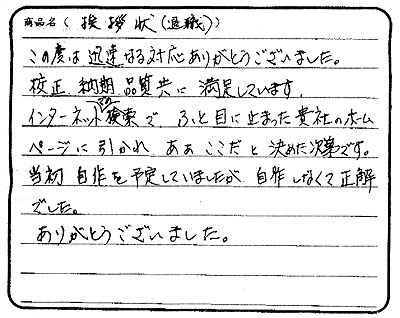 商品名（ 挨拶状（退職））
この度は 迅速なる対応 ありがとうございました。
校正、納期、品質共に 満足しています。
インターネットでの検索で、ふと目に止まった貴社のホーム
ページに引かれ、ああ ここだ と 決めた次第です。
当初 自作を予定していましたが 自作しなくて正解
でした。
ありがとうございました。